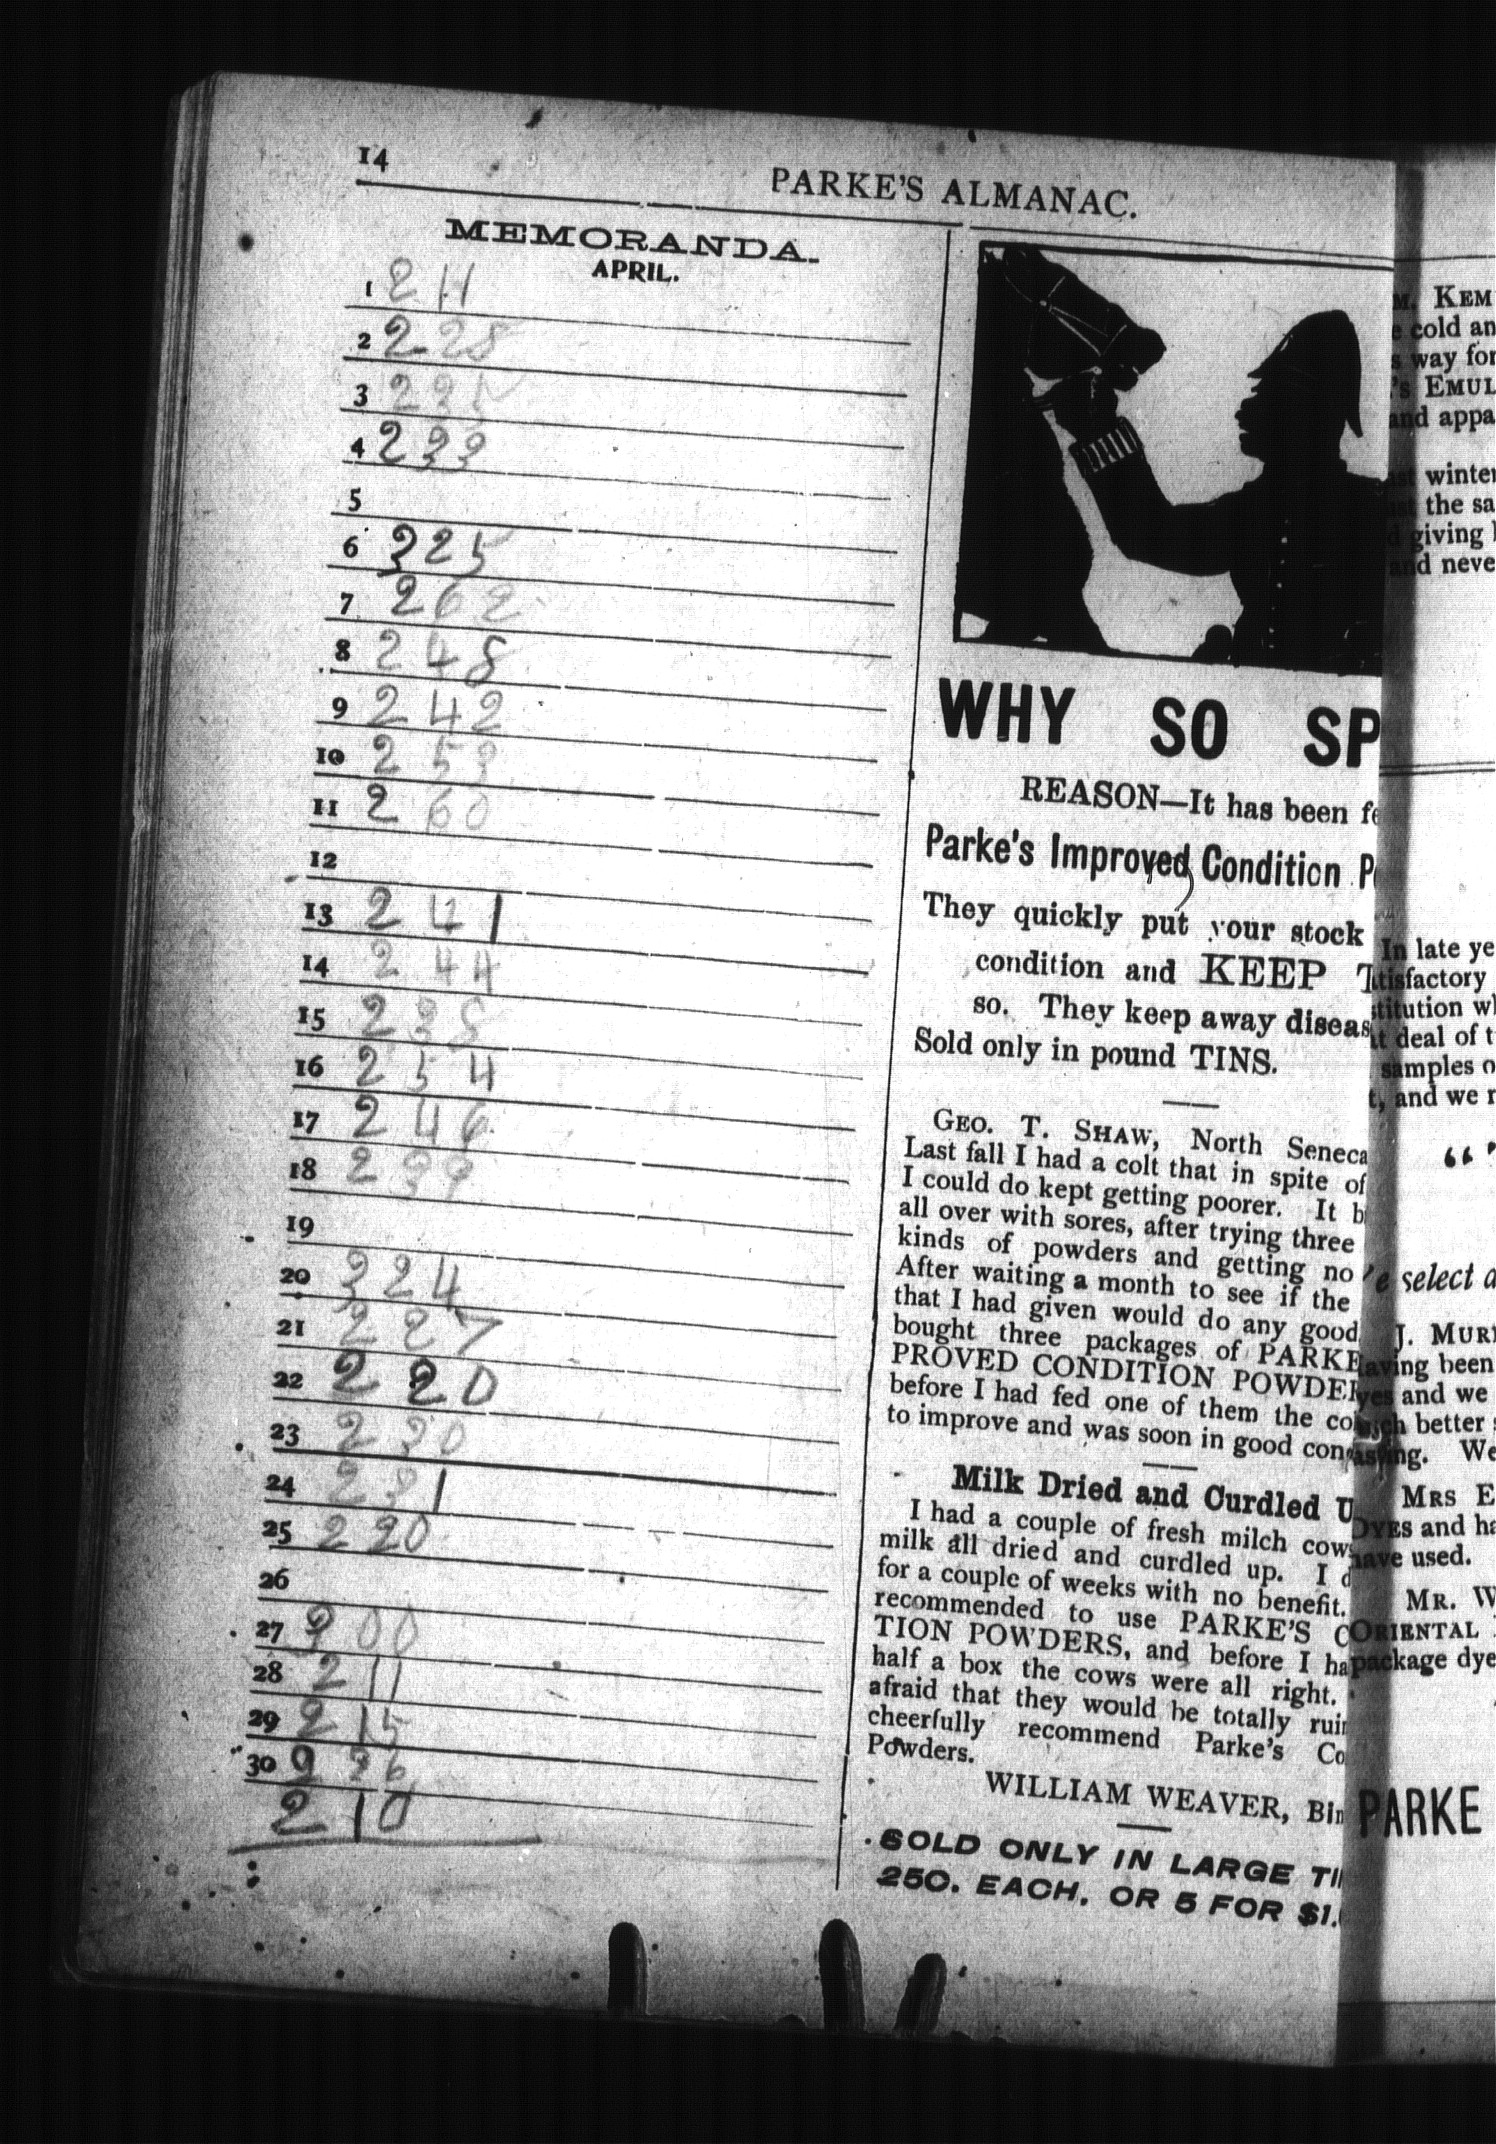 14
PARKE'S ALMANAC.
MEMORANDA.
APRIL.
1 211
2 228
3
4 233
5
6 325
7 262
8 248
9 242
10 253
11 260
12
13 241
14 244
15 235
16 254
17 246
18 239
19
20 324
21 227
22 220
23 230
24 231
25 220
26
27 300
28 211
29 215
30
210
WHY SO SP
REASON—It has been fe
Parke's Improved Condition P
They quickly put your stock
condition and KEEP T
so. They keep away diseas
Sold only in pound TINS.
GEO. T. SHAW, North Seneca
Last fall I had a colt that in spite of
I could do kept getting poorer. It b
all over with sores, after trying three
kinds of powders and getting no
After waiting a month to see if the
that I had given would do any good
bought three packages of PARKE
PROVED CONDITION POWDE
before I had fed one of them the co
to improve and was soon in good con
Milk Dried and Curdled U
I had a couple of fresh milch cow
milk all dried and curdled up. I d
for a couple of weeks with no benefit.
recommended to use PARKE'S C
TION POWDERS, and before I ha
half a box the cows were all right.
afraid that they would be totally ruin
cheerfully recommend Parke's Co
Powders.
WILLIAM WEAVER, Bin
SOLD ONLY IN LARGE TI
25C. EACH. OR 5 FOR $1.
KEM
cold an
way for
's EMUL
and appa
winter
the sa
giving
and neve
In late ye
tisfactory
stitution wh
deal of t
samples o
t, and we r
"
select a
J. MUR
aving been
yes and we
better
We
MRS E
DYES and ha
have used.
MR. W
ORIENTAL
package dye
PARKE